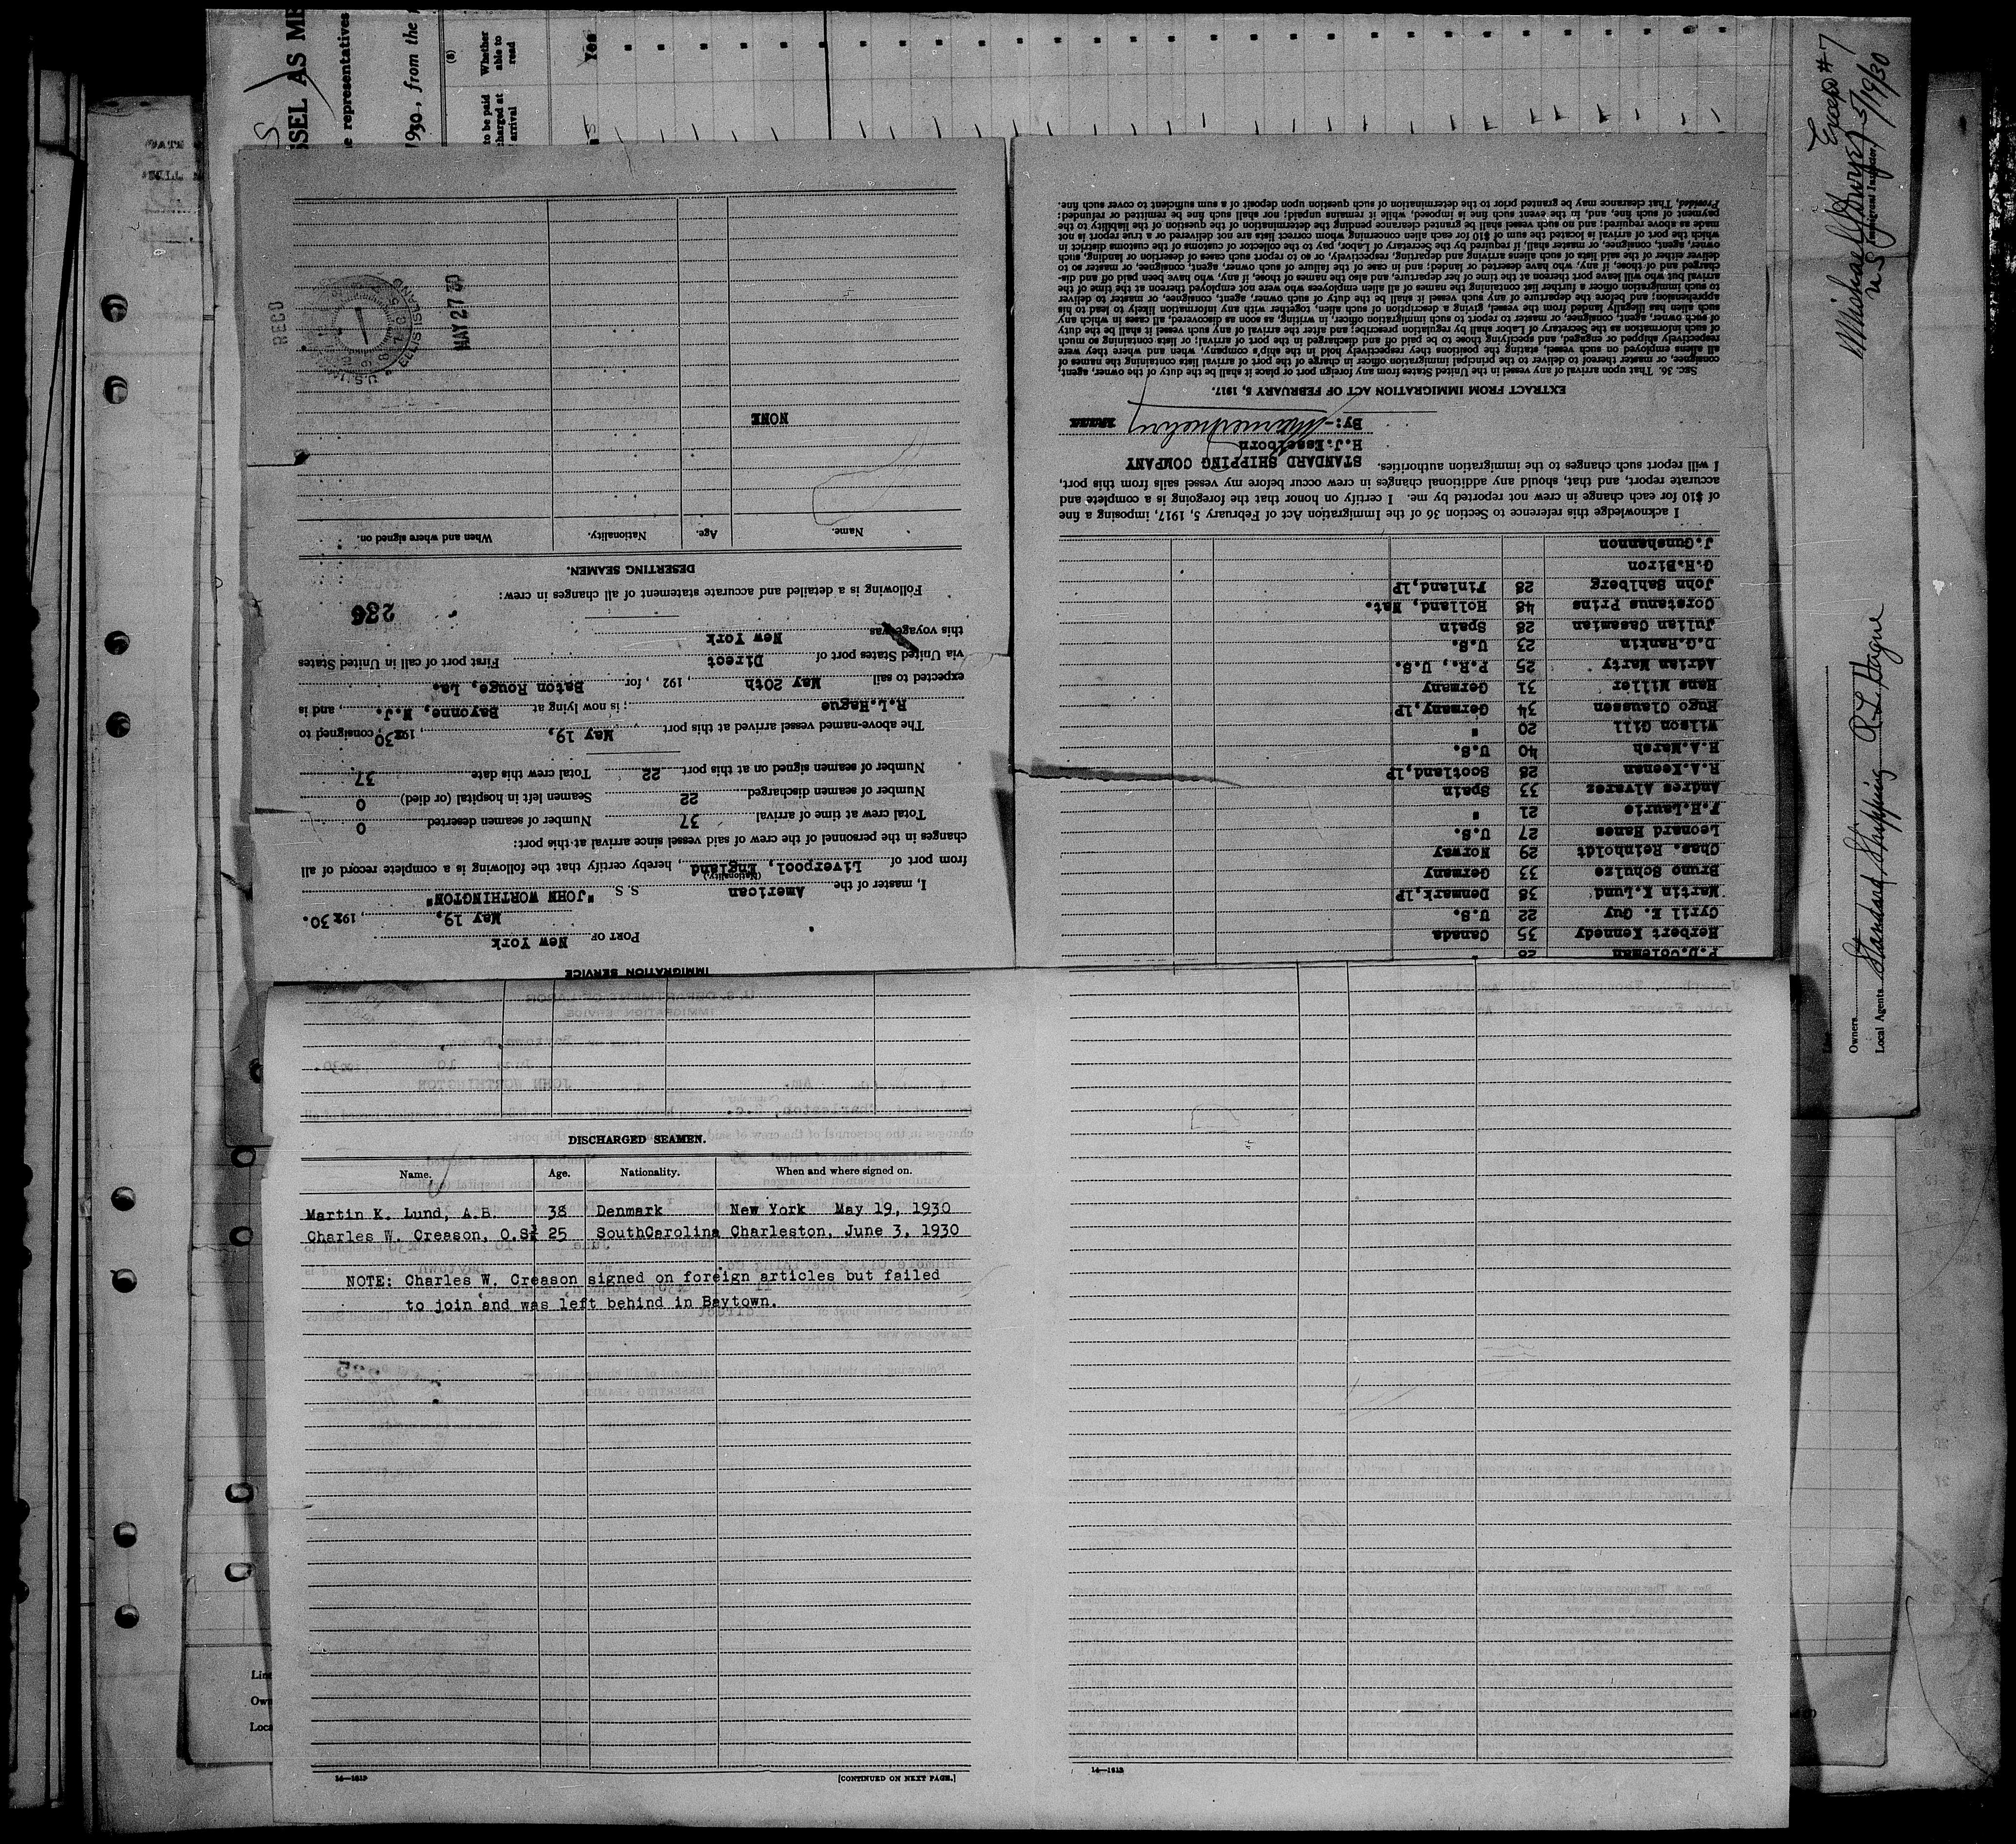 SSEL AS ME
e representatives
1930, from the
(8)
Whether
able to
read
to be paid
charged at
arrival
Yes
Except #7
Michael J Dwyer 5/19/30
U S Immigrant Inspector
Owners
Local Agents Standard Shipping R L Hague
IMMIGRATION SERVICE
PORT OF New York
May 19, 1930.
I, master of the American S. S. "JOHN WORTHINGTON"
(Nationality)
from port of Liverpool, England, hereby certify that the following is a complete record of all
changes in the personnel of the crew of said vessel since arrival at this port:
Total crew at time of arrival 37 Number of seamen deserted 0
Number of seamen discharged 22 Seamen left in hospital (or died) 0
Number of seamen signed on at this port 22 Total crew this date 37
The above-named vessel arrived at this port May 19, 1930, consigned to
R.L.Hague; is now lying at Bayonne, N.J., and is
expected to sail May 20th, 192 , for Baton Rouge, La.
via United States port of Direct First port of call in United States
this voyage was New York
236
Following is a detailed and accurate statement of all changes in crew:
DESERTING SEAMEN.
Name. Age. Nationality. When and where signed on.
NONE
RECD
MAY 27 30
ELLIS ISLAND
P.D.Coleman 28 "
Herbert Kennedy 35 Canada
Cyril E. Guy 22 U.S.
Martin K.Lund 38 Denmark,1P
Bruno Schulze 33 Germany
Chas. Reinholdt 29 Norway
Leonard Hanes 27 U.S.
F.H.Laurie 21 "
Andres Alvarez 33 Spain
R.A.Keenan 28 Scotland,1P
H.A.Marsh 40 U.S.
Wilson Gill 20 "
Hugo Claussen 34 Germany,1P
Hans Miller 31 Germany
Adrian Marty 25 P.R., U.S.
D.G.Rankin 23 U.S.
Julian Casamian 28 Spain
Corstanus Prins 48 Holland, Nat.
John Sahlberg 28 Finland,1P
G.H.Biron
J.Gunshannon
I acknowledge this reference to Section 36 of the Immigration Act of February 5, 1917, imposing a fine
of $10 for each change in crew not reported by me. I certify on honor that the foregoing is a complete and
accurate report, and that, should any additional changes in crew occur before my vessel sails from this port,
I will report such changes to the immigration authorities. STANDARD SHIPPING COMPANY
H.J.Esselborn
By:-
EXTRACT FROM IMMIGRATION ACT OF FEBRUARY 5, 1917.
SEC. 36. That upon arrival of any vessel in the United States from any foreign port or place it shall be the duty of the owner, agent,
consignee, or master thereof to deliver to the principal immigration officer in charge of the port of arrival lists containing the names of
all aliens employed on such vessel, stating the positions they respectively hold in the ship's company, when and where they were
respectively shipped or engaged, and specifying those to be paid off and discharged in the port of arrival; or lists containing so much
of such information as the Secretary of Labor shall by regulation prescribe; and after the arrival of any such vessel it shall be the duty
of such owner, agent, consignee, or master to report to such immigration officer, in writing, as soon as discovered, all cases in which any
such alien has illegally landed from the vessel, giving a description of such alien, together with any information likely to lead to his
apprehension; and before the departure of any such vessel it shall be the duty of such owner, agent, consignee, or master to deliver
to such immigration officer a further list containing the names of all alien employees who were not employed thereon at the time of the
arrival but who will leave port thereon at the time of her departure, and also the names of those, if any, who have been paid off and dis-
charged and of those, if any, who have deserted or landed; and in case of the failure of such owner, agent, consignee, or master so to
deliver either of the said lists of such aliens arriving and departing, respectively, or so to report such cases of desertion or landing, such
owner, agent, consignee, or master shall, if required by the Secretary of Labor, pay to the collector of customs of the customs district in
which the port of arrival is located the sum of $10 for each alien concerning whom correct lists are not delivered or a true report is not
made as above required; and no such vessel shall be granted clearance pending the determination of the question of the liability to the
payment of such fine, and, in the event such fine is imposed, while it remains unpaid; nor shall such fine be remitted or refunded:
Provided, That clearance may be granted prior to the determination of such question upon deposit of a sum sufficient to cover such fine.
DISCHARGED SEAMEN.
Name. Age. Nationality. When and where signed on.
Martin K. Lund, A.B. 38 Denmark New York May 19, 1930
Charles W. Creason, O.S. 25 SouthCarolina Charleston, June 3, 1930
NOTE: Charles W. Creason signed on foreign articles but failed
to join and was left behind in Baytown.
14—1813
[CONTINUED ON NEXT PAGE.]
14—1813
Line
Own
Loca